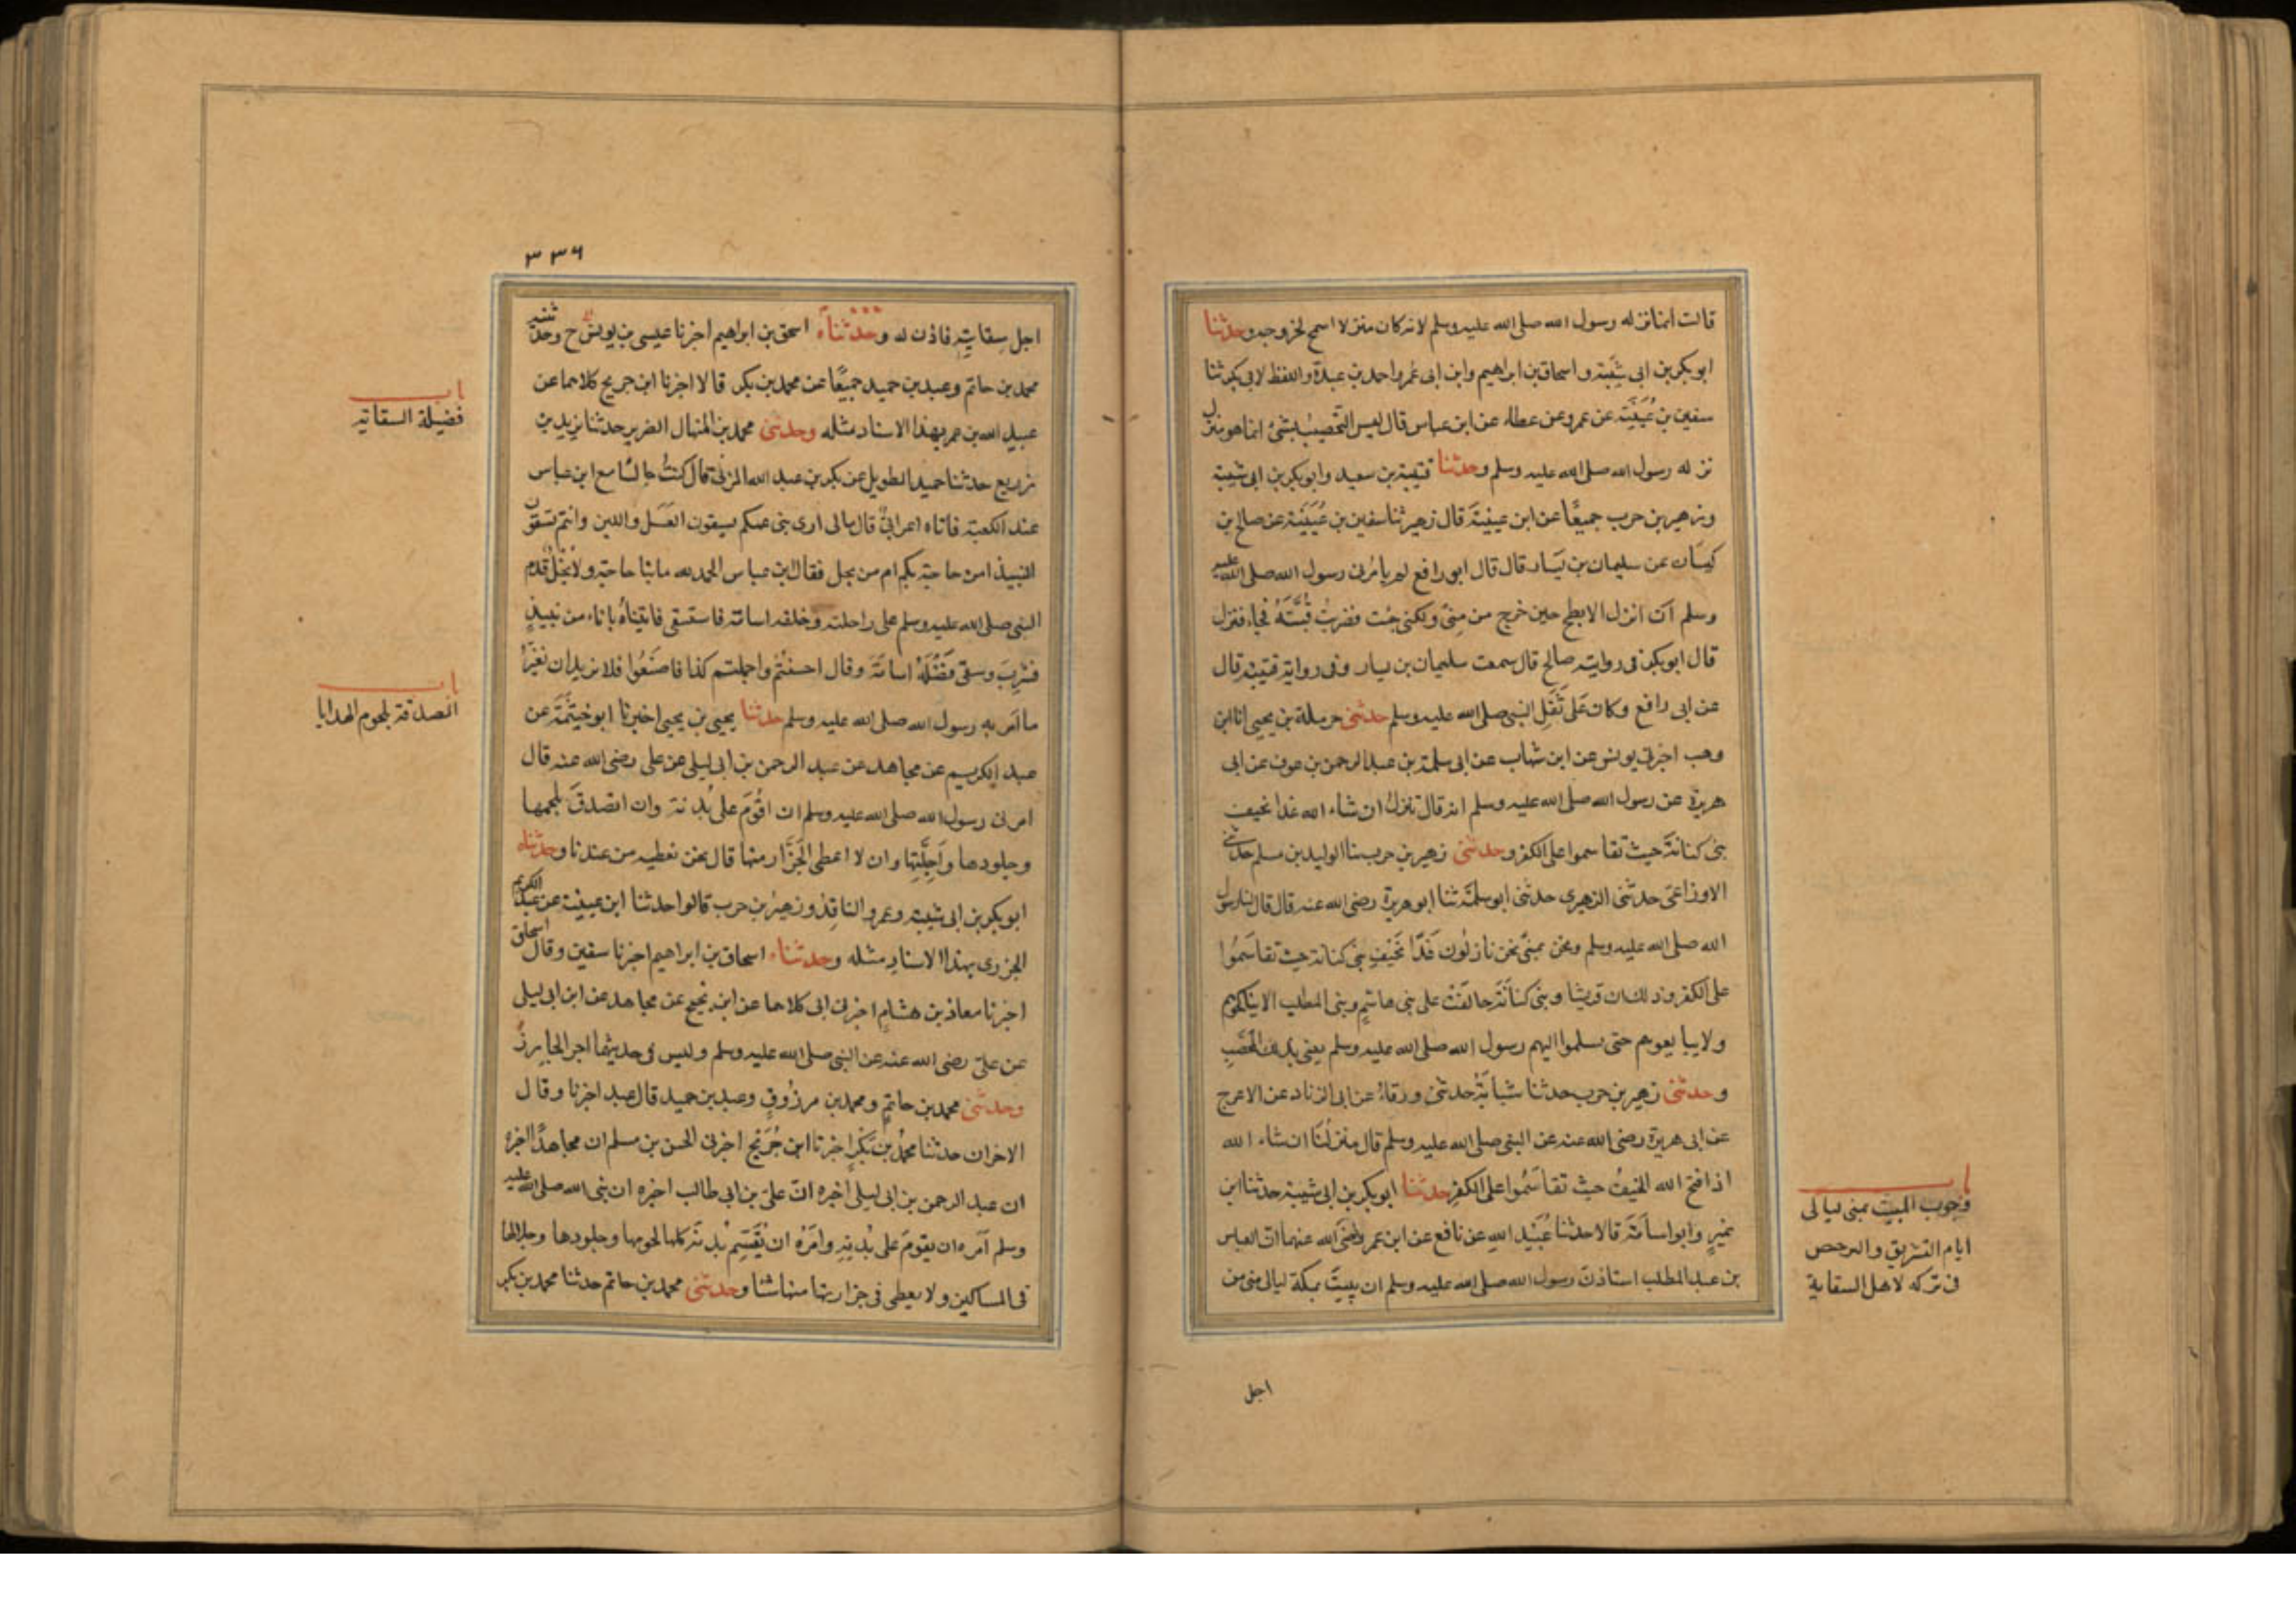 قالت انما نزله رسول الله صلى الله عليه وسلم لانه كان منزلا اسمح لخروجه وحدثنا
ابو بكر بن ابى شيبة واسحاق بن ابراهيم وابن ابى عمر واحمد بن عبدة واللفظ لابى بكر ثنا
سفين بن عُيَيْنَة عن عمرو عن عطاء عن ابن عباس قال ليس التحصيب بشئ انما هو منزل
نزله رسول الله صلى الله عليه وسلم وحدثنا قتيبة بن سعيد وابو بكر بن ابى شيبة
وزهير بن حرب جميعًا عن ابن عيينة قال زهير ثنا سفين بن عُيَيْنة عن صالح بن
كيسان عن سليمان بن يسار قال قال ابو رافع لم يامرنى رسول الله صلى الله عليه
وسلم ان انزل الابطح حين خرج من منى ولكنى جئت فضربت قبته فجاء فنزل
قال ابو بكر فى رواية صالح قال سمعت سليمان بن يسار وفى رواية قتيبة قال
عن ابى رافع وكان على ثَقَلِ النبى صلى الله عليه وسلم حدثنى حرملة بن يحيى انا ابن
وهب اخبرنى يونس عن ابن شهاب عن ابى سلمة بن عبد الرحمن بن عوف عن ابى
هريرة عن رسول الله صلى الله عليه وسلم انه قال ننزل ان شاء الله غدا بخيف
بنى كنانة حيث تقاسموا على الكفر وحدثنى زهير بن حرب ثنا الوليد بن مسلم حدثنى
الاوزاعى حدثنى الزهرى حدثنى ابو سلمة ثنا ابو هريرة رضى الله عنه قال قال لنا رسول
الله صلى الله عليه وسلم ونحن بمنى نحن نازلون غدًا بخيف بنى كنانة حيث تقاسموا
على الكفر وذلك ان قريشا وبنى كنانة حالفت على بنى هاشم وبنى المطلب الا يناكحوهم
ولا يبايعوهم حتى يسلموا اليهم رسول الله صلى الله عليه وسلم يعنى بذلك المحصب
وحدثنى زهير بن حرب حدثنا شبابة حدثنى ورقاء عن ابى الزناد عن الاعرج
عن ابى هريرة رضى الله عنه عن النبى صلى الله عليه وسلم قال منزلنا ان شاء الله
اذا فتح الله الخيف حيث تقاسموا على الكفر حدثنا ابو بكر بن ابى شيبة حدثنا ابن
نمير وابو اسامة قالا حدثنا عُبَيْد الله عن نافع عن ابن عمر رضى الله عنهما ان العباس
بن عبد المطلب استاذن رسول الله صلى الله عليه وسلم ان يبيت بمكة ليالى منى من
باب
وجوب المبيت بمنى ليالى
ايام التشريق والترخص
فى تركه لاهل السقاية
اجل
٣٣٦
اجل سقايته فاذن له وحدثناه اسحق بن ابراهيم اخبرنا عيسى بن يونس ح وحدثنيه
محمد بن حاتم وعبد بن حميد جميعًا عن محمد بن بكر قالا اخبرنا ابن جريج كلاهما عن
عبيد الله بن عمر بهذا الاسناد مثله وحدثنى محمد بن المنهال الضرير حدثنا يزيد بن
زريع حدثنا حميد الطويل عن بكر بن عبد الله المزنى قال كنتُ جالسًا مع ابن عباس
عند الكعبة فاتاه اعرابى قال مالى ارى بنى عمكم يسقون العسل واللبن وانتم تسقون
النبيذ امن حاجة بكم ام من بخل فقال ابن عباس الحمد لله مابنا حاجة ولا بخل قدم
النبى صلى الله عليه وسلم على راحلته وخلفه اسامة فاستسقى فاتيناه باناء من نبيذ
فشرب وسقى فضله اسامة وقال احسنتم واجملتم كذا فاصنعوا فلا نريد ان نغير
ما امر به رسول الله صلى الله عليه وسلم حدثنا يحيى بن يحيى اخبرنا ابو خيثمة عن
عبد الكريم عن مجاهد عن عبد الرحمن بن ابى ليلى عن على رضى الله عنه قال
امرنى رسول الله صلى الله عليه وسلم ان اقوم على بُدنه وان اتصدق بلحمها
وجلودها واجلتها وان لا اعطى الجزار منها قال نحن نعطيه من عندنا وحدثناه
ابو بكر بن ابى شيبة وعمرو الناقد وزهير بن حرب قالوا حدثنا ابن عيينة عن عبد الكريم
الجزرى بهذا الاسناد مثله وحدثناه اسحاق بن ابراهيم اخبرنا سفين وقال اسحاق
اخبرنا معاذ بن هشام اخبرنى ابى كلاهما عن ابن نجيح عن مجاهد عن ابن ابى ليلى
عن على رضى الله عنه عن النبى صلى الله عليه وسلم وليس فى حديثهما اجر الجازر
وحدثنى محمد بن حاتم ومحمد بن مرزوق وعبد بن حميد قال عبد اخبرنا وقال
الاخران حدثنا محمد بن بكر اخبرنا ابن جُرَيج اخبرنى الحسن بن مسلم ان مجاهدًا اخبره
ان عبد الرحمن بن ابى ليلى اخبره ان على بن ابى طالب اخبره ان نبى الله صلى الله عليه
وسلم امره ان يقوم على بدنه وامره ان يقسم بدنه كلها لحومها وجلودها وجلالها
فى المساكين ولا يعطى فى جزارتها منها شئا وحدثنى محمد بن حاتم حدثنا محمد بن بكر
باب
فضيلة السقاية
باب
الصدقة بلحوم الهدايا